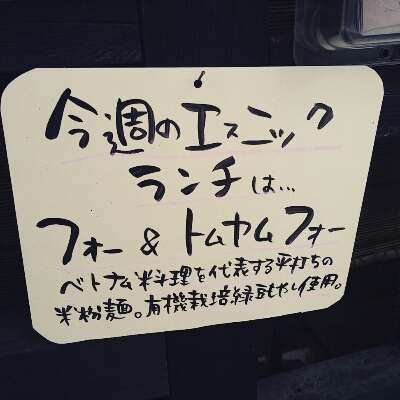 今週のエスニック
ランチは...
フォー & トムヤムフォー
ベトナム料理を代表する平打ちの
米粉麺。有機栽培緑豆もやし使用。